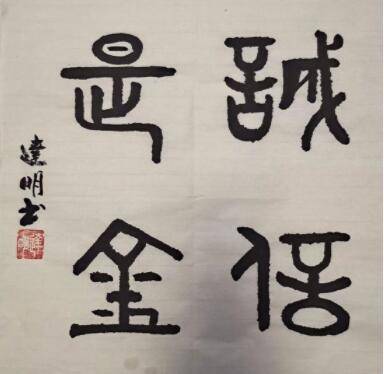 誠信
是金
達明书